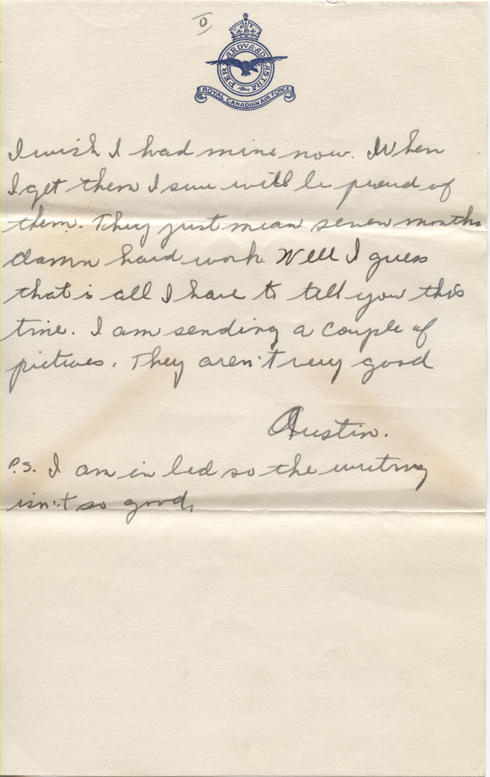 PER ARDUA AD ASTRA
ROYAL CANADIAN AIR FORCE
I wish I had mine now. When
I get them I sure will be proud of
them. They just mean seven months
damn hard work Well I guess
that is all I have to tell you this
time. I am sending a couple of
pictures. They aren't very good
Austin.
P.S. I am in bed so the writing
isn't so good,